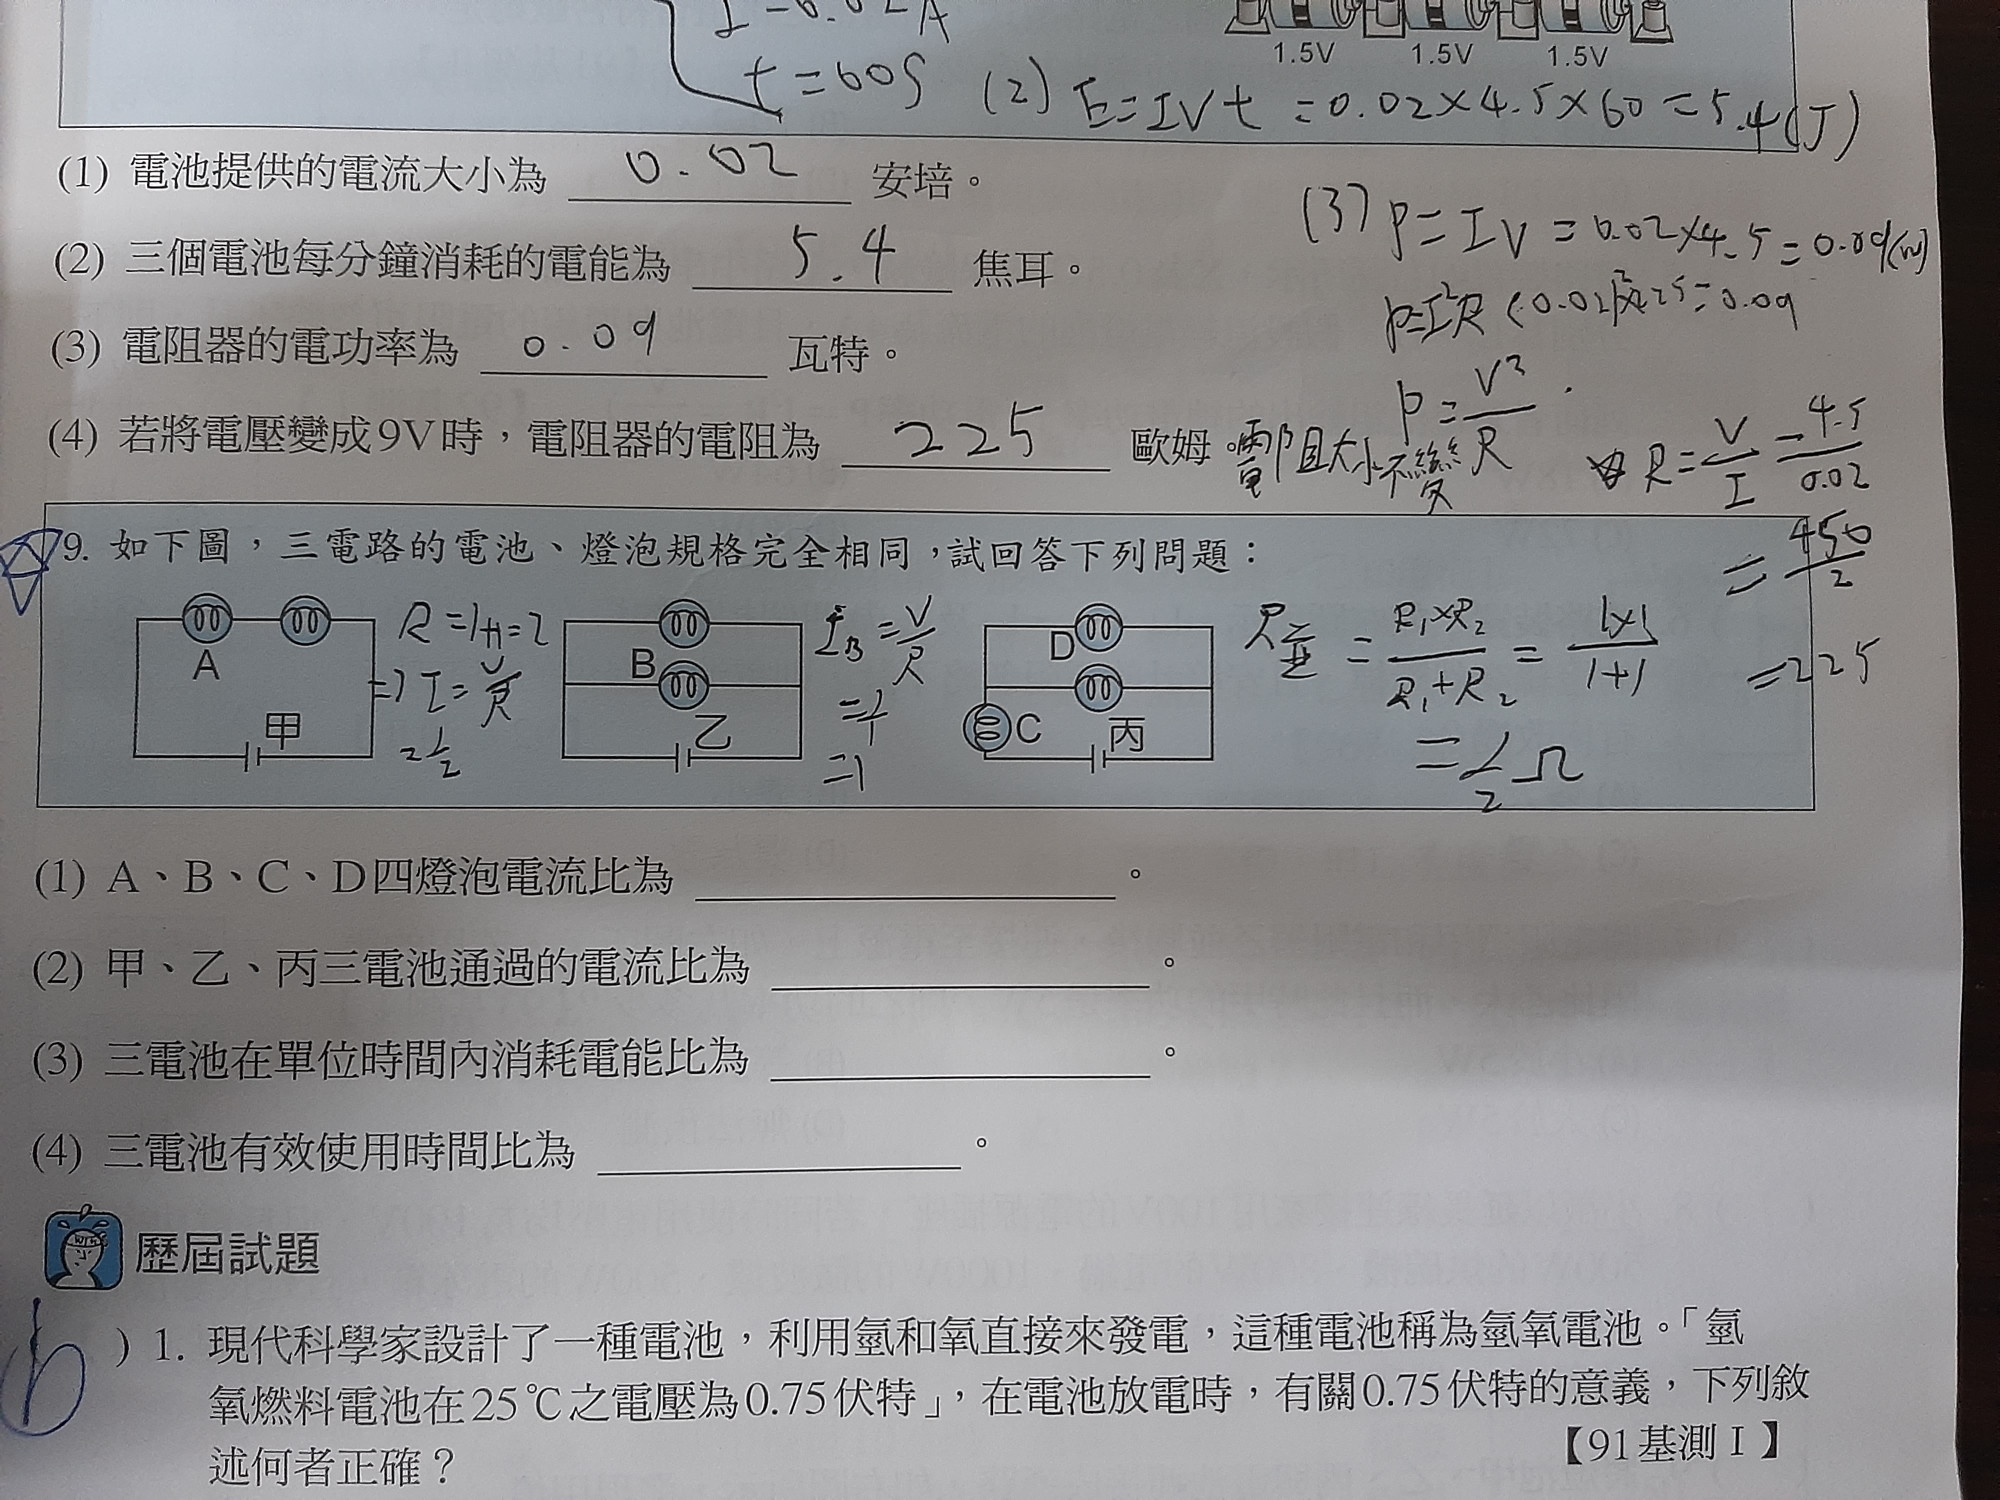 I=0.02A
t=60S
1.5V 1.5V 1.5V
(2) E=IVt =0.02×4.5×60=5.4(J)
(1) 電池提供的電流大小為 0.02 安培。
(2) 三個電池每分鐘消耗的電能為 5.4 焦耳。
(3) P=IV=0.02×4.5=0.09(W)
P=I²R (0.02)²×225=0.09
(3) 電阻器的電功率為 0.09 瓦特。
P=V²/R
(4) 若將電壓變成9V時,電阻器的電阻為 225 歐姆。電阻大小不變
R=V/I=4.5/0.02
=450/2
=225
9. 如下圖,三電路的電池、燈泡規格完全相同,試回答下列問題:
A
甲
R=1+1=2
=>I=V/R
=1/2
B
乙
I_B=V/R
=1/1
=1
D
C
丙
R並=R₁×R₂/R₁+R₂=1×1/1+1
=1/2Ω
(1) A、B、C、D四燈泡電流比為 。
(2) 甲、乙、丙三電池通過的電流比為 。
(3) 三電池在單位時間內消耗電能比為 。
(4) 三電池有效使用時間比為 。
歷屆試題
) 1. 現代科學家設計了一種電池,利用氫和氧直接來發電,這種電池稱為氫氧電池。「氫
氧燃料電池在25℃之電壓為0.75伏特」,在電池放電時,有關0.75伏特的意義,下列敘
述何者正確?
【91基測Ⅰ】